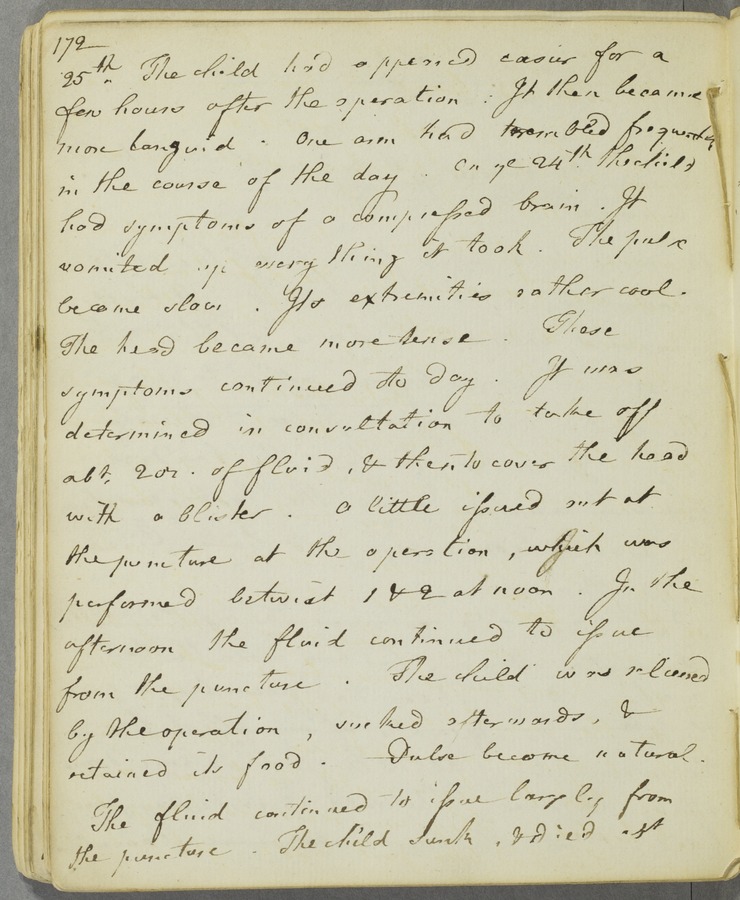 172
25th. The child had appeared easier for a
few hours after the operation. It then became
more languid. One arm had trembled frequently
in the course of the day. On ye 24th. The child
had symptoms of a compressed brain. It
vomited up every thing it took. The pulse
became slow. Its extremities rather cool.
The head became more tense. These
symptoms continued to day. It was
determined in consultation to take off
abt. 2oz. of fluid, & then to cover the head
with a blister. A little issued out at
the puncture at the operation, which was
performed betwixt 1 & 2 at noon. In the
afternoon the fluid continued to issue
from the puncture. The child was relieved
by the operation, sucked afterwards, &
retained its food. Pulse became natural.
The fluid continued to issue largely from
the puncture. The child sunk, & died at